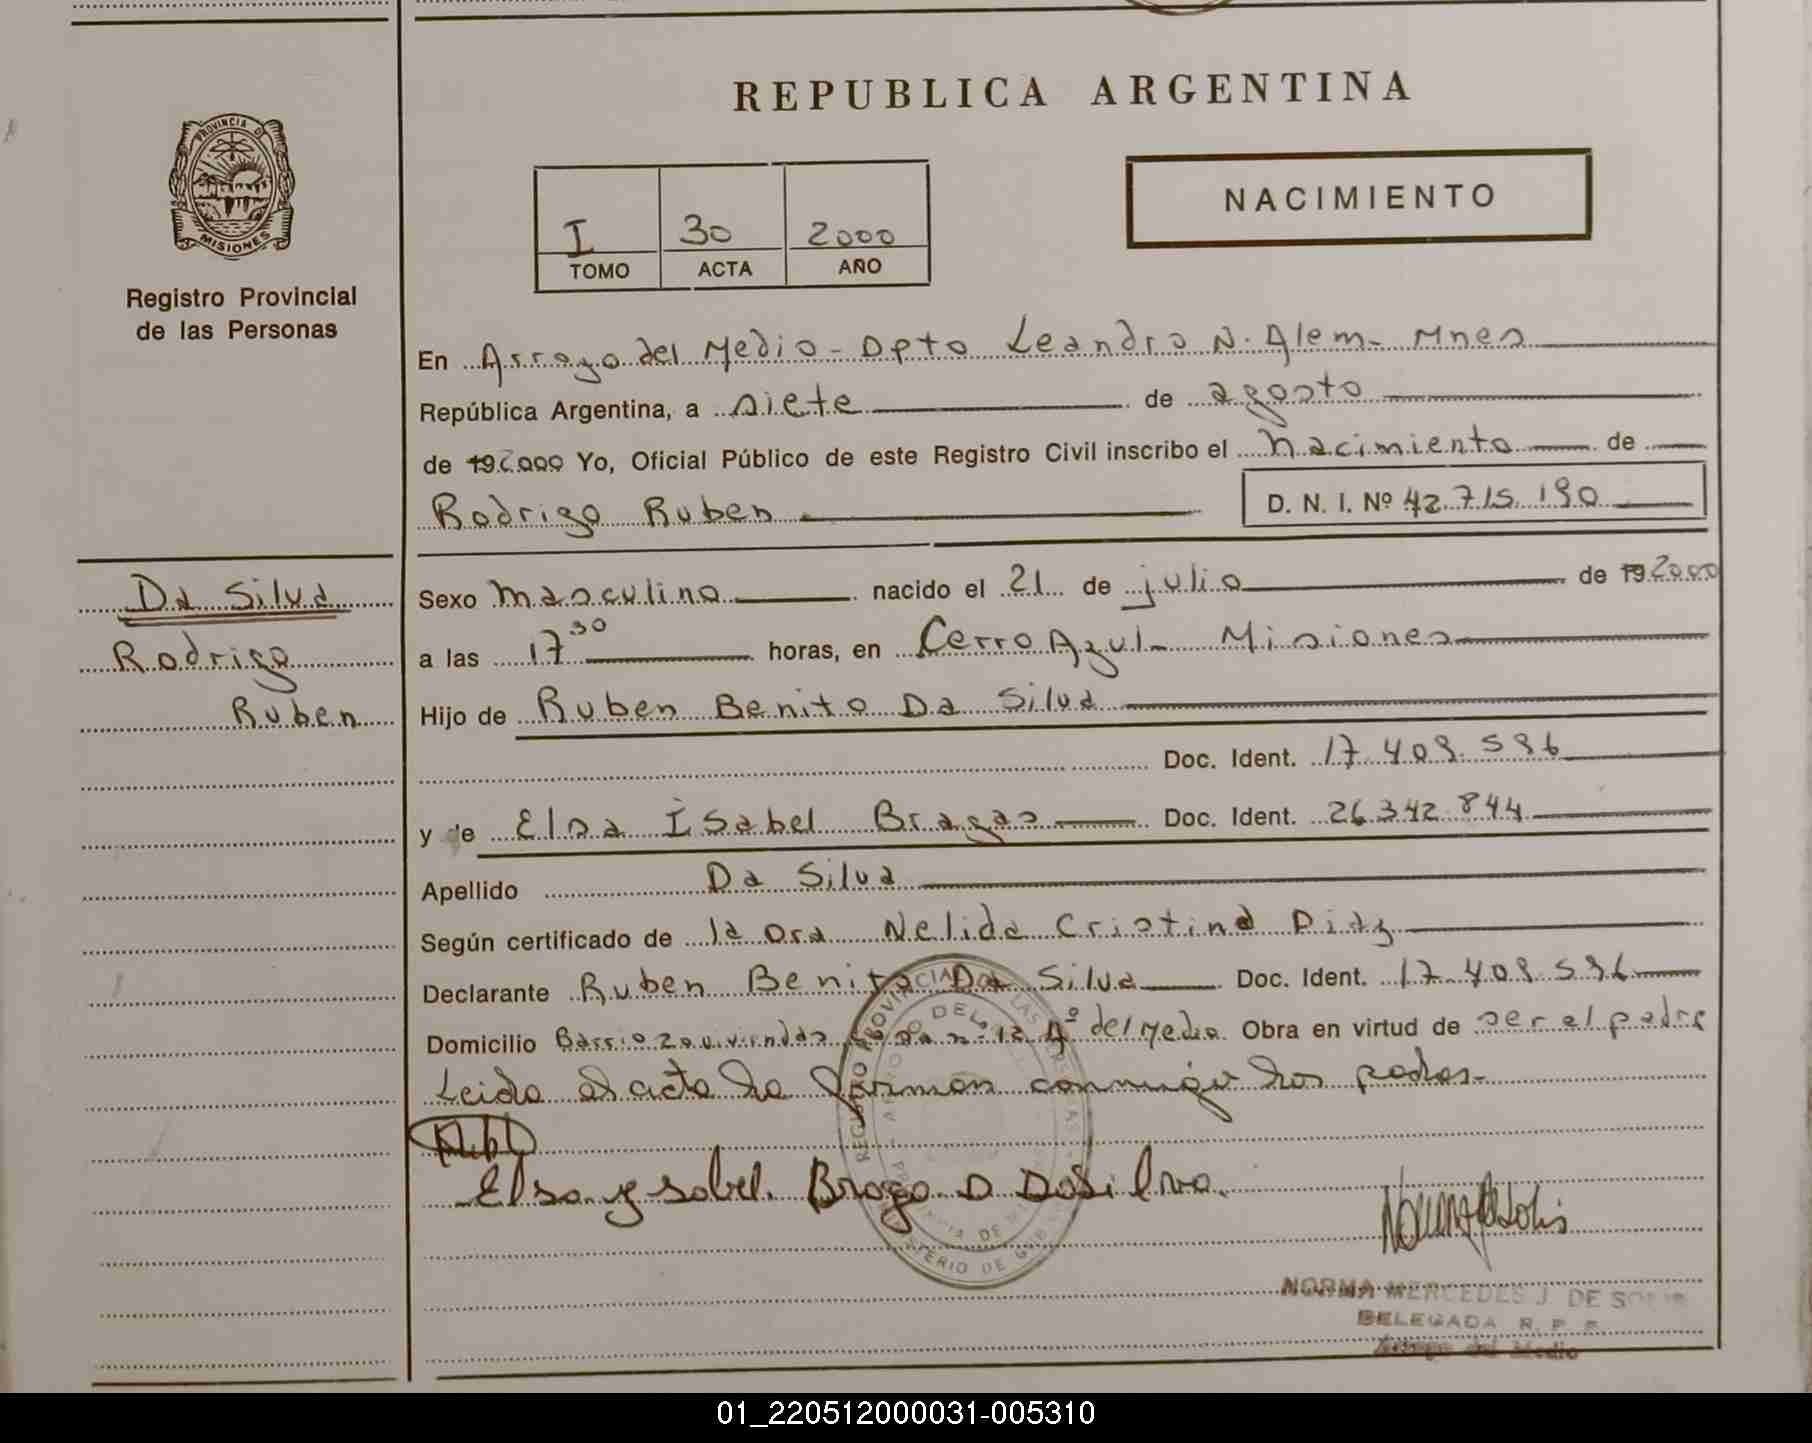 REPUBLICA ARGENTINA
PROVINCIA D
MISIONES
Registro Provincial
de las Personas
NACIMIENTO
I 30 2000
TOMO ACTA AÑO
En Arroyo del Medio - Dpto Leandro N. Alem - Mnes
República Argentina, a siete de agosto
de 192000 Yo, Oficial Público de este Registro Civil inscribo el nacimiento de
Rodrigo Ruben D. N. I. Nº 42.715.190
Da Silva
Rodrigo
Ruben
Sexo masculino nacido el 21 de julio de 192000
a las 17 30 horas, en Cerro Azul - Misiones
Hijo de Ruben Benito Da Silva
Doc. Ident. 17.409.596
y de Elsa Isabel Bragas Doc. Ident. 26.342.844
Apellido Da Silva
Según certificado de la Dra Nelida Cristina Diaz
Declarante Ruben Benito Da Silva Doc. Ident. 17.409.596
Domicilio Barrio 20 viviendas 12 Aº del Medio Obra en virtud de ser el padre
Leida el acta la firman conmigo los padres-
Elsa ysabel. Braga D DaSilva.
NORMA MERCEDES J. DE SOLIS
DELEGADA R. P. P.
Arroyo del Medio
01_220512000031-005310